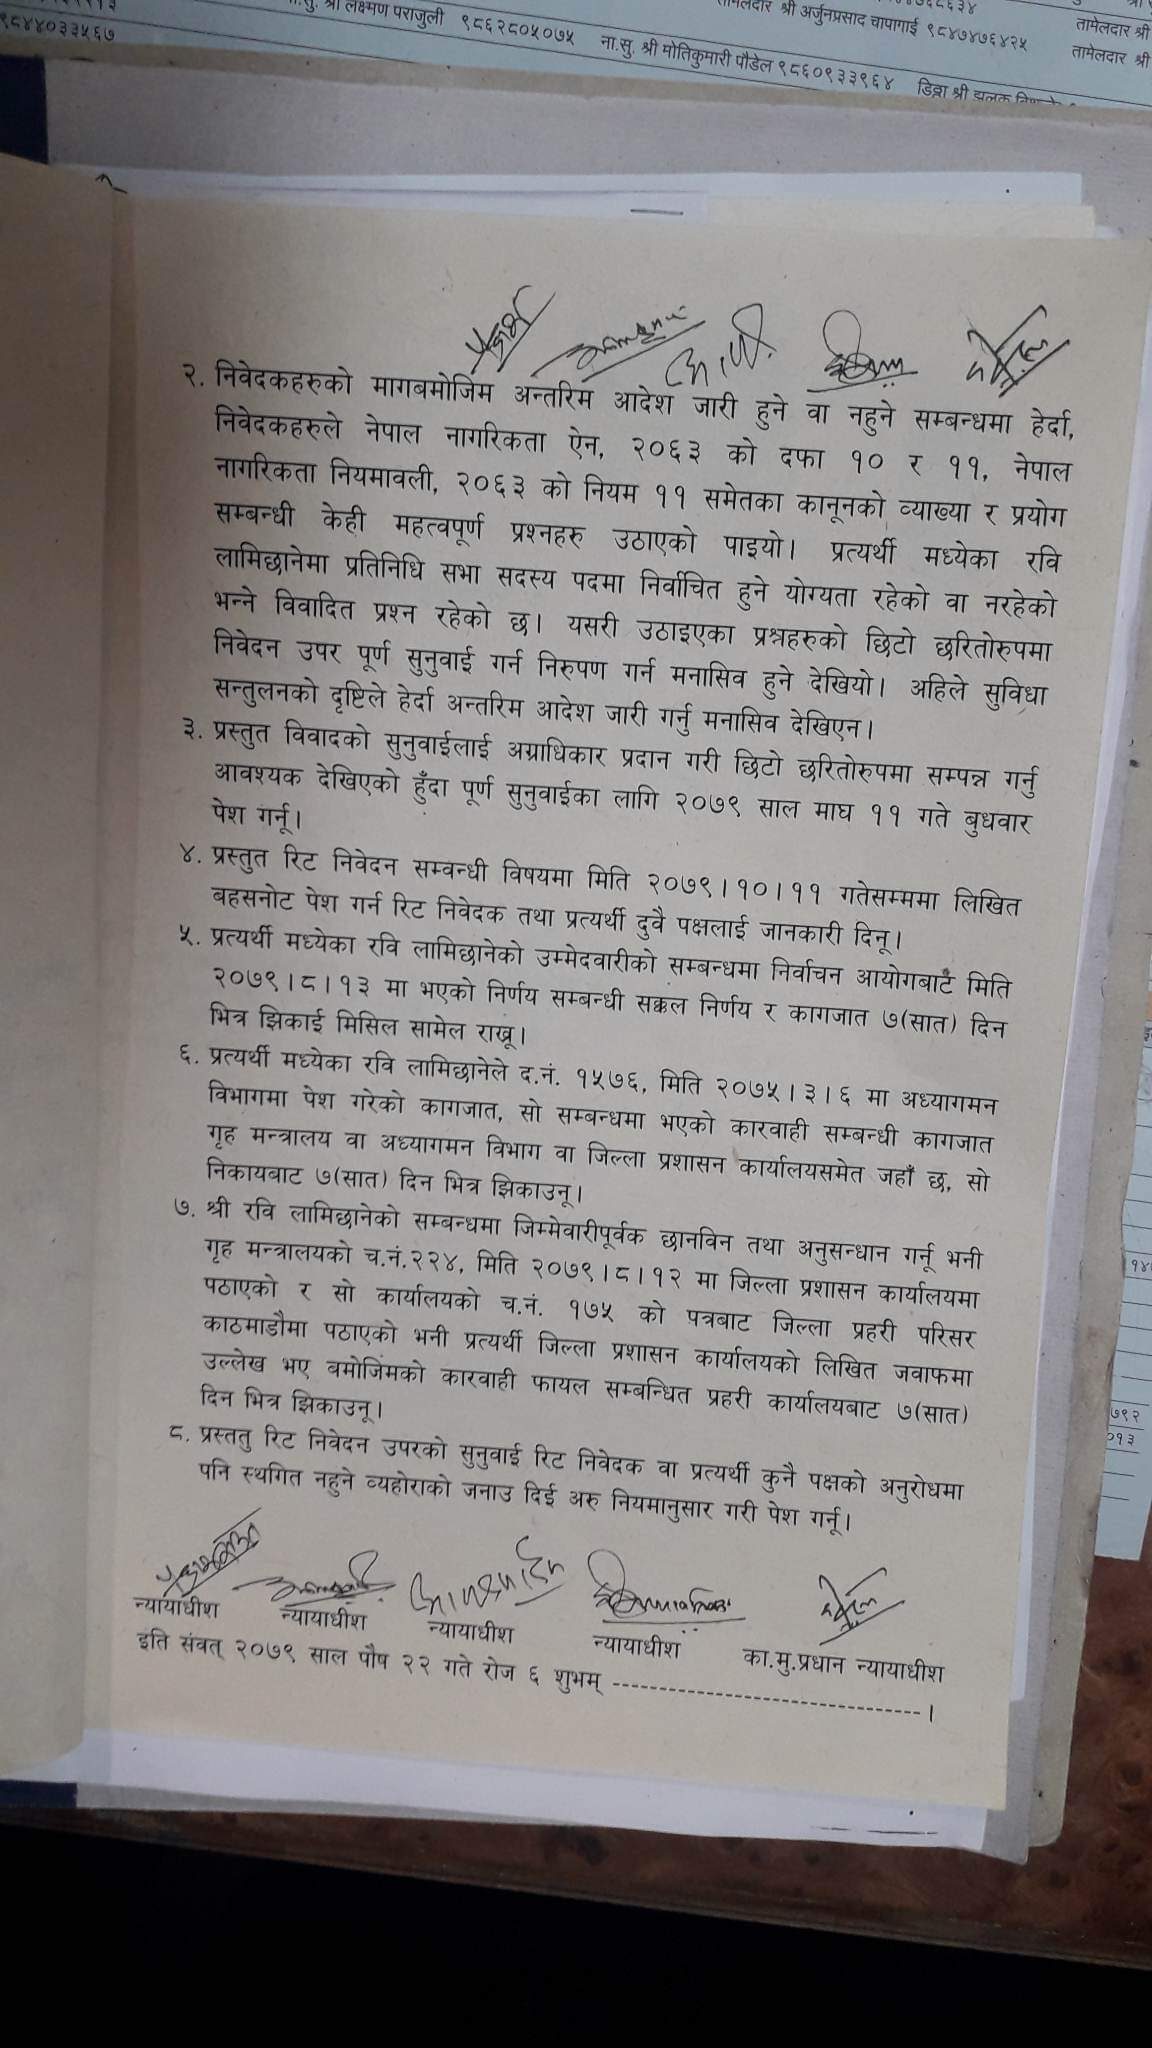 ना.सु. श्री लक्ष्मण पराजुली ९८६२८०५०७५
तामेलदार श्री अर्जुनप्रसाद चापागाई ९८४७४७६४२५
तामेलदार श्री
९८४४०३३५६७
ना.सु. श्री मोतिकुमारी पौडेल ९८६०९३३९६४
तामेलदार श्री
डिठ्ठा श्री झलक
२. निवेदकहरुको मागबमोजिम अन्तरिम आदेश जारी हुने वा नहुने सम्बन्धमा हेर्दा,
निवेदकहरुले नेपाल नागरिकता ऐन, २०६३ को दफा १० र ११, नेपाल
नागरिकता नियमावली, २०६३ को नियम ११ समेतका कानूनको व्याख्या र प्रयोग
सम्बन्धी केही महत्वपूर्ण प्रश्नहरु उठाएको पाइयो। प्रत्यर्थी मध्येका रवि
लामिछानेमा प्रतिनिधि सभा सदस्य पदमा निर्वाचित हुने योग्यता रहेको वा नरहेको
भन्ने विवादित प्रश्न रहेको छ। यसरी उठाइएका प्रश्नहरुको छिटो छरितोरुपमा
निवेदन उपर पूर्ण सुनुवाई गर्न निरुपण गर्न मनासिव हुने देखियो। अहिले सुविधा
सन्तुलनको दृष्टिले हेर्दा अन्तरिम आदेश जारी गर्नु मनासिव देखिएन।
३. प्रस्तुत विवादको सुनुवाईलाई अग्राधिकार प्रदान गरी छिटो छरितोरुपमा सम्पन्न गर्नु
आवश्यक देखिएको हुँदा पूर्ण सुनुवाईका लागि २०७९ साल माघ ११ गते बुधवार
पेश गर्नू।
४. प्रस्तुत रिट निवेदन सम्वन्धी विषयमा मिति २०७९।१०।११ गतेसम्ममा लिखित
बहसनोट पेश गर्न रिट निवेदक तथा प्रत्यर्थी दुवै पक्षलाई जानकारी दिनू।
५. प्रत्यर्थी मध्येका रवि लामिछानेको उम्मेदवारीको सम्बन्धमा निर्वाचन आयोगबाट मिति
२०७९।८।१३ मा भएको निर्णय सम्बन्धी सक्कल निर्णय र कागजात ७(सात) दिन
भित्र झिकाई मिसिल सामेल राखू।
६. प्रत्यर्थी मध्येका रवि लामिछानेले द.नं. १५७६, मिति २०७५।३।६ मा अध्यागमन
विभागमा पेश गरेको कागजात, सो सम्बन्धमा भएको कारवाही सम्बन्धी कागजात
गृह मन्त्रालय वा अध्यागमन विभाग वा जिल्ला प्रशासन कार्यालयसमेत जहाँ छ, सो
निकायबाट ७(सात) दिन भित्र झिकाउनू।
७. श्री रवि लामिछानेको सम्बन्धमा जिम्मेवारीपूर्वक छानविन तथा अनुसन्धान गर्नू भनी
गृह मन्त्रालयको च.नं.२२४, मिति २०७९।८।१२ मा जिल्ला प्रशासन कार्यालयमा
पठाएको र सो कार्यालयको च.नं. १७५ को पत्रबाट जिल्ला प्रहरी परिसर
काठमाडौमा पठाएको भनी प्रत्यर्थी जिल्ला प्रशासन कार्यालयको लिखित जवाफमा
उल्लेख भए बमोजिमको कारवाही फायल सम्बन्धित प्रहरी कार्यालयबाट ७(सात)
दिन भित्र झिकाउनू।
८. प्रस्ततु रिट निवेदन उपरको सुनुवाई रिट निवेदक वा प्रत्यर्थी कुनै पक्षको अनुरोधमा
पनि स्थगित नहुने व्यहोराको जनाउ दिई अरु नियमानुसार गरी पेश गर्नू।
न्यायाधीश न्यायाधीश न्यायाधीश न्यायाधीश का.मु.प्रधान न्यायाधीश
इति संवत् २०७९ साल पौष २२ गते रोज ६ शुभम् ------------------------------।